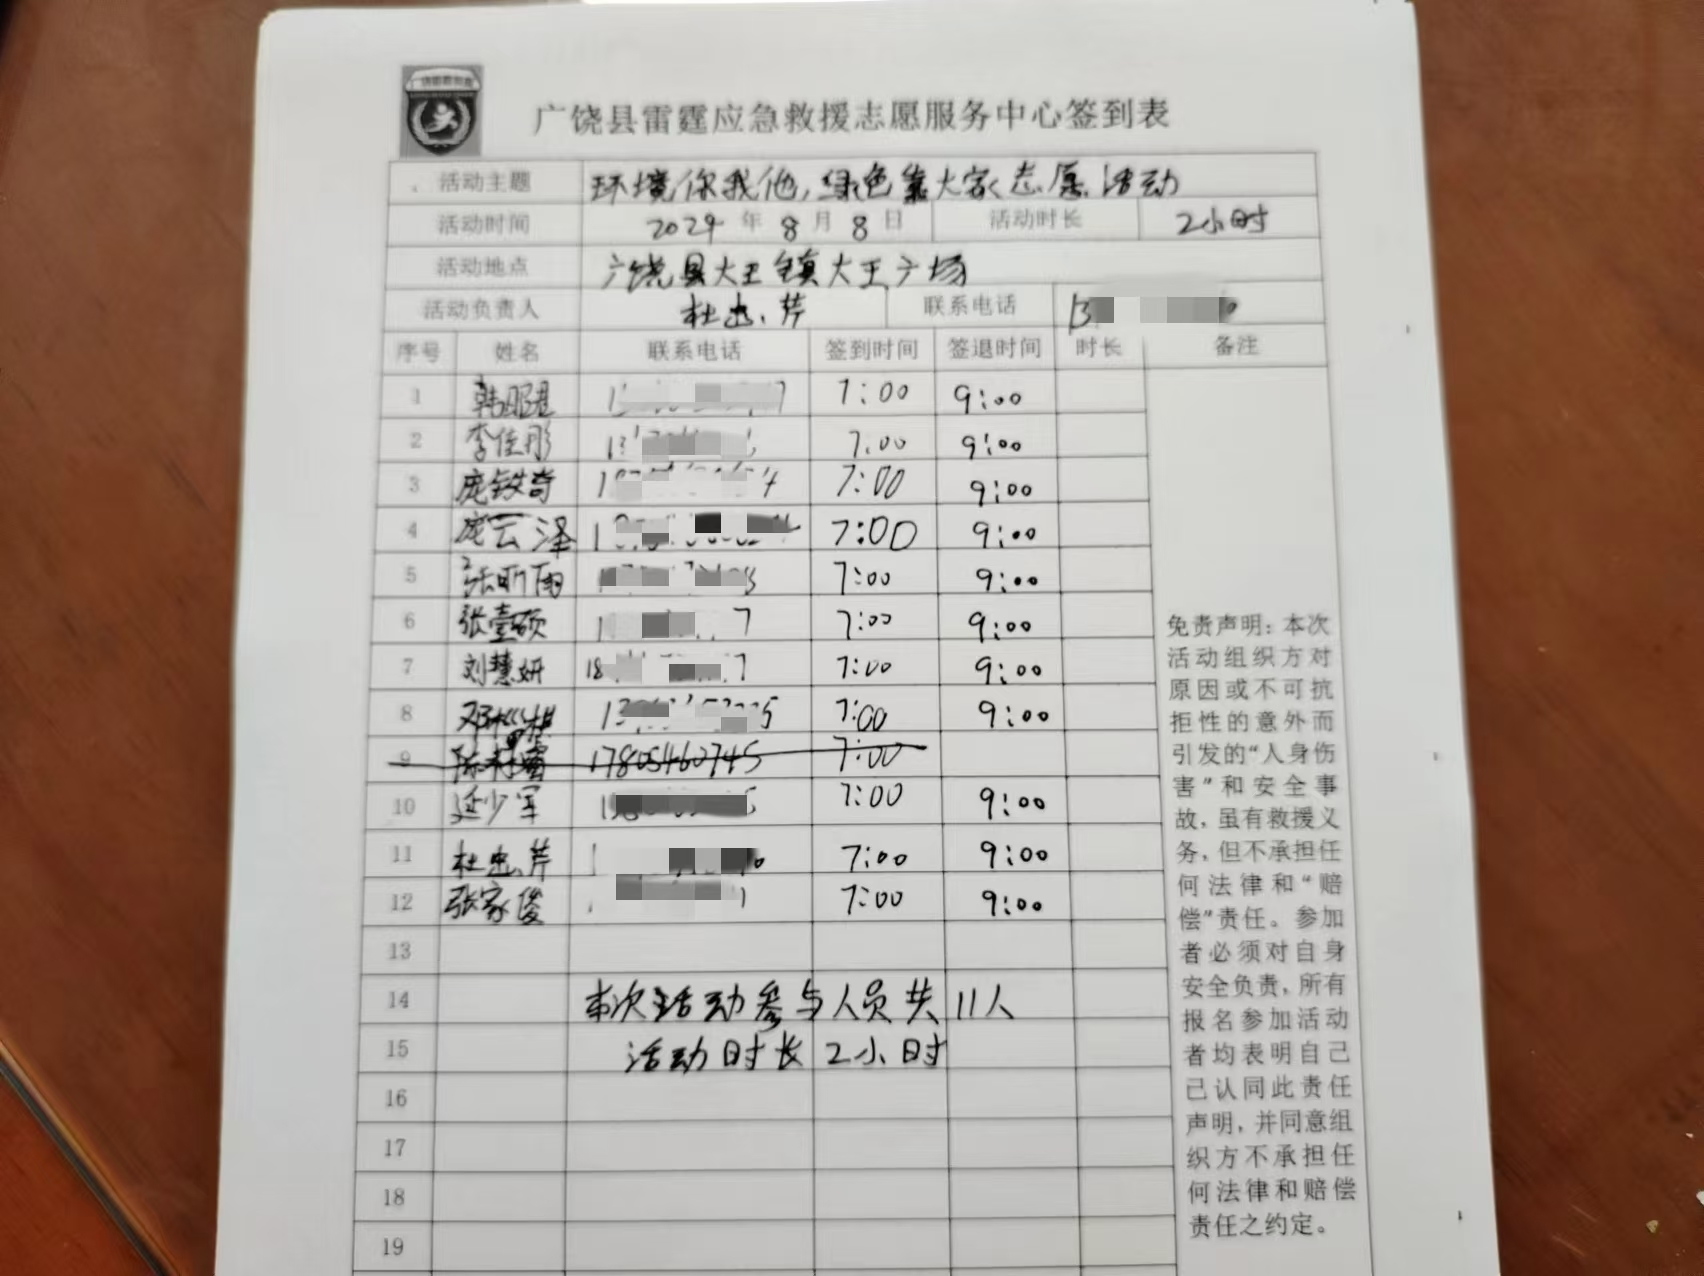 广饶县雷霆应急救援志愿服务中心签到表
活动主题 环境你我他,绿色靠大家志愿活动
活动时间 2024年8月8日 活动时长 2小时
活动地点 广饶县大王镇大王广场
活动负责人 杜忠芹 联系电话
序号 姓名 联系电话 签到时间 签退时间 时长 备注
1 韩昭基 7:00 9:00
2 李佳彤 7:00 9:00
3 庞铁奇 7:00 9:00
4 庞云泽 7:00 9:00
5 张昕雨 7:00 9:00
6 张壹硕 7:00 9:00
7 刘慧妍 7:00 9:00
8 邓 棋 7:00 9:00
9 陈 17805460745 7:00
10 延少军 7:00 9:00
11 杜忠芹 7:00 9:00
12 张家俊 7:00 9:00
13
14 本次活动参与人员共11人
15 活动时长2小时
16
17
18
19
免责声明:本次
活动组织方对
原因或不可抗
拒性的意外而
引发的“人身伤
害”和安全事
故,虽有救援义
务,但不承担任
何法律和“赔
偿”责任。参加
者必须对自身
安全负责,所有
报名参加活动
者均表明自己
已认同此责任
声明,并同意组
织方不承担任
何法律和赔偿
责任之约定。